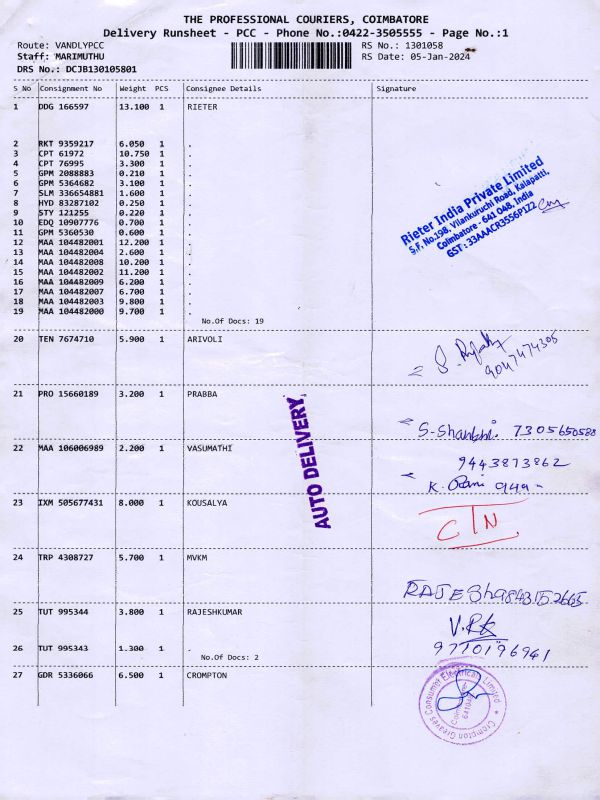 THE PROFESSIONAL COURIERS, COIMBATORE
Delivery Runsheet - PCC - Phone No.:0422-3505555 - Page No.:1
Route: VANDLYPCC RS No.: 1301058
Staff: MARIMUTHU RS Date: 05-Jan-2024
DRS No.: DCJB130105801
S No Consignment No Weight PCS Consignee Details Signature
1 DDG 166597 13.100 1 RIETER
2 RKT 9359217 6.050 1 .
3 CPT 61972 10.750 1 .
4 CPT 76995 3.300 1 .
5 GPM 2088883 0.210 1 .
6 GPM 5364682 3.100 1 .
7 SLM 336654881 1.600 1 .
8 HYD 83287102 0.250 1 .
9 STY 121255 0.220 1 .
10 EDQ 10907776 0.700 1 .
11 GPM 5360530 0.600 1 .
12 MAA 104482001 12.200 1 .
13 MAA 104482004 2.600 1 .
14 MAA 104482008 10.200 1 .
15 MAA 104482002 11.200 1 .
16 MAA 104482009 6.200 1 .
17 MAA 104482007 6.700 1 .
18 MAA 104482003 9.800 1 .
19 MAA 104482000 9.700 1 .
No.Of Docs: 19
Rieter India Private Limited
S.F. No.198, Vilankuruchi Road, Kalapatti,
Coimbatore - 641 048, India
GST : 33AAACR3556P1Z2
20 TEN 7674710 5.900 1 ARIVOLI
9047474305
21 PRO 15660189 3.200 1 PRABBA
S-Shanthi. 7305650588
AUTO DELIVERY
22 MAA 106006989 2.200 1 VASUMATHI
9443873862
K. Rani
23 IXM 505677431 8.000 1 KOUSALYA
CTN
24 TRP 4308727 5.700 1 MVKM
RAJESH 9843152665
25 TUT 995344 3.800 1 RAJESHKUMAR
V.RK
26 TUT 995343 1.300 1 .
9770196941
No.Of Docs: 2
27 GDR 5336066 6.500 1 CROMPTON
Crompton Greaves Consumer Electricals Limited